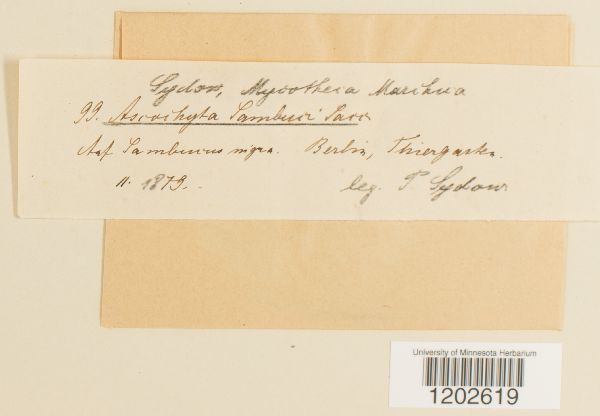 Sydow, Mycotheca Marchica
99. Ascochyta Sambuci Sacc.
Auf Sambucus nigra. Berlin, Thiergarten.
11. 1879.
leg. P. Sydow
University of Minnesota Herbarium
1202619